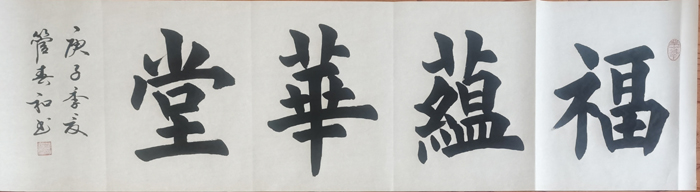 福蘊華堂
庚子季夏
管春和书